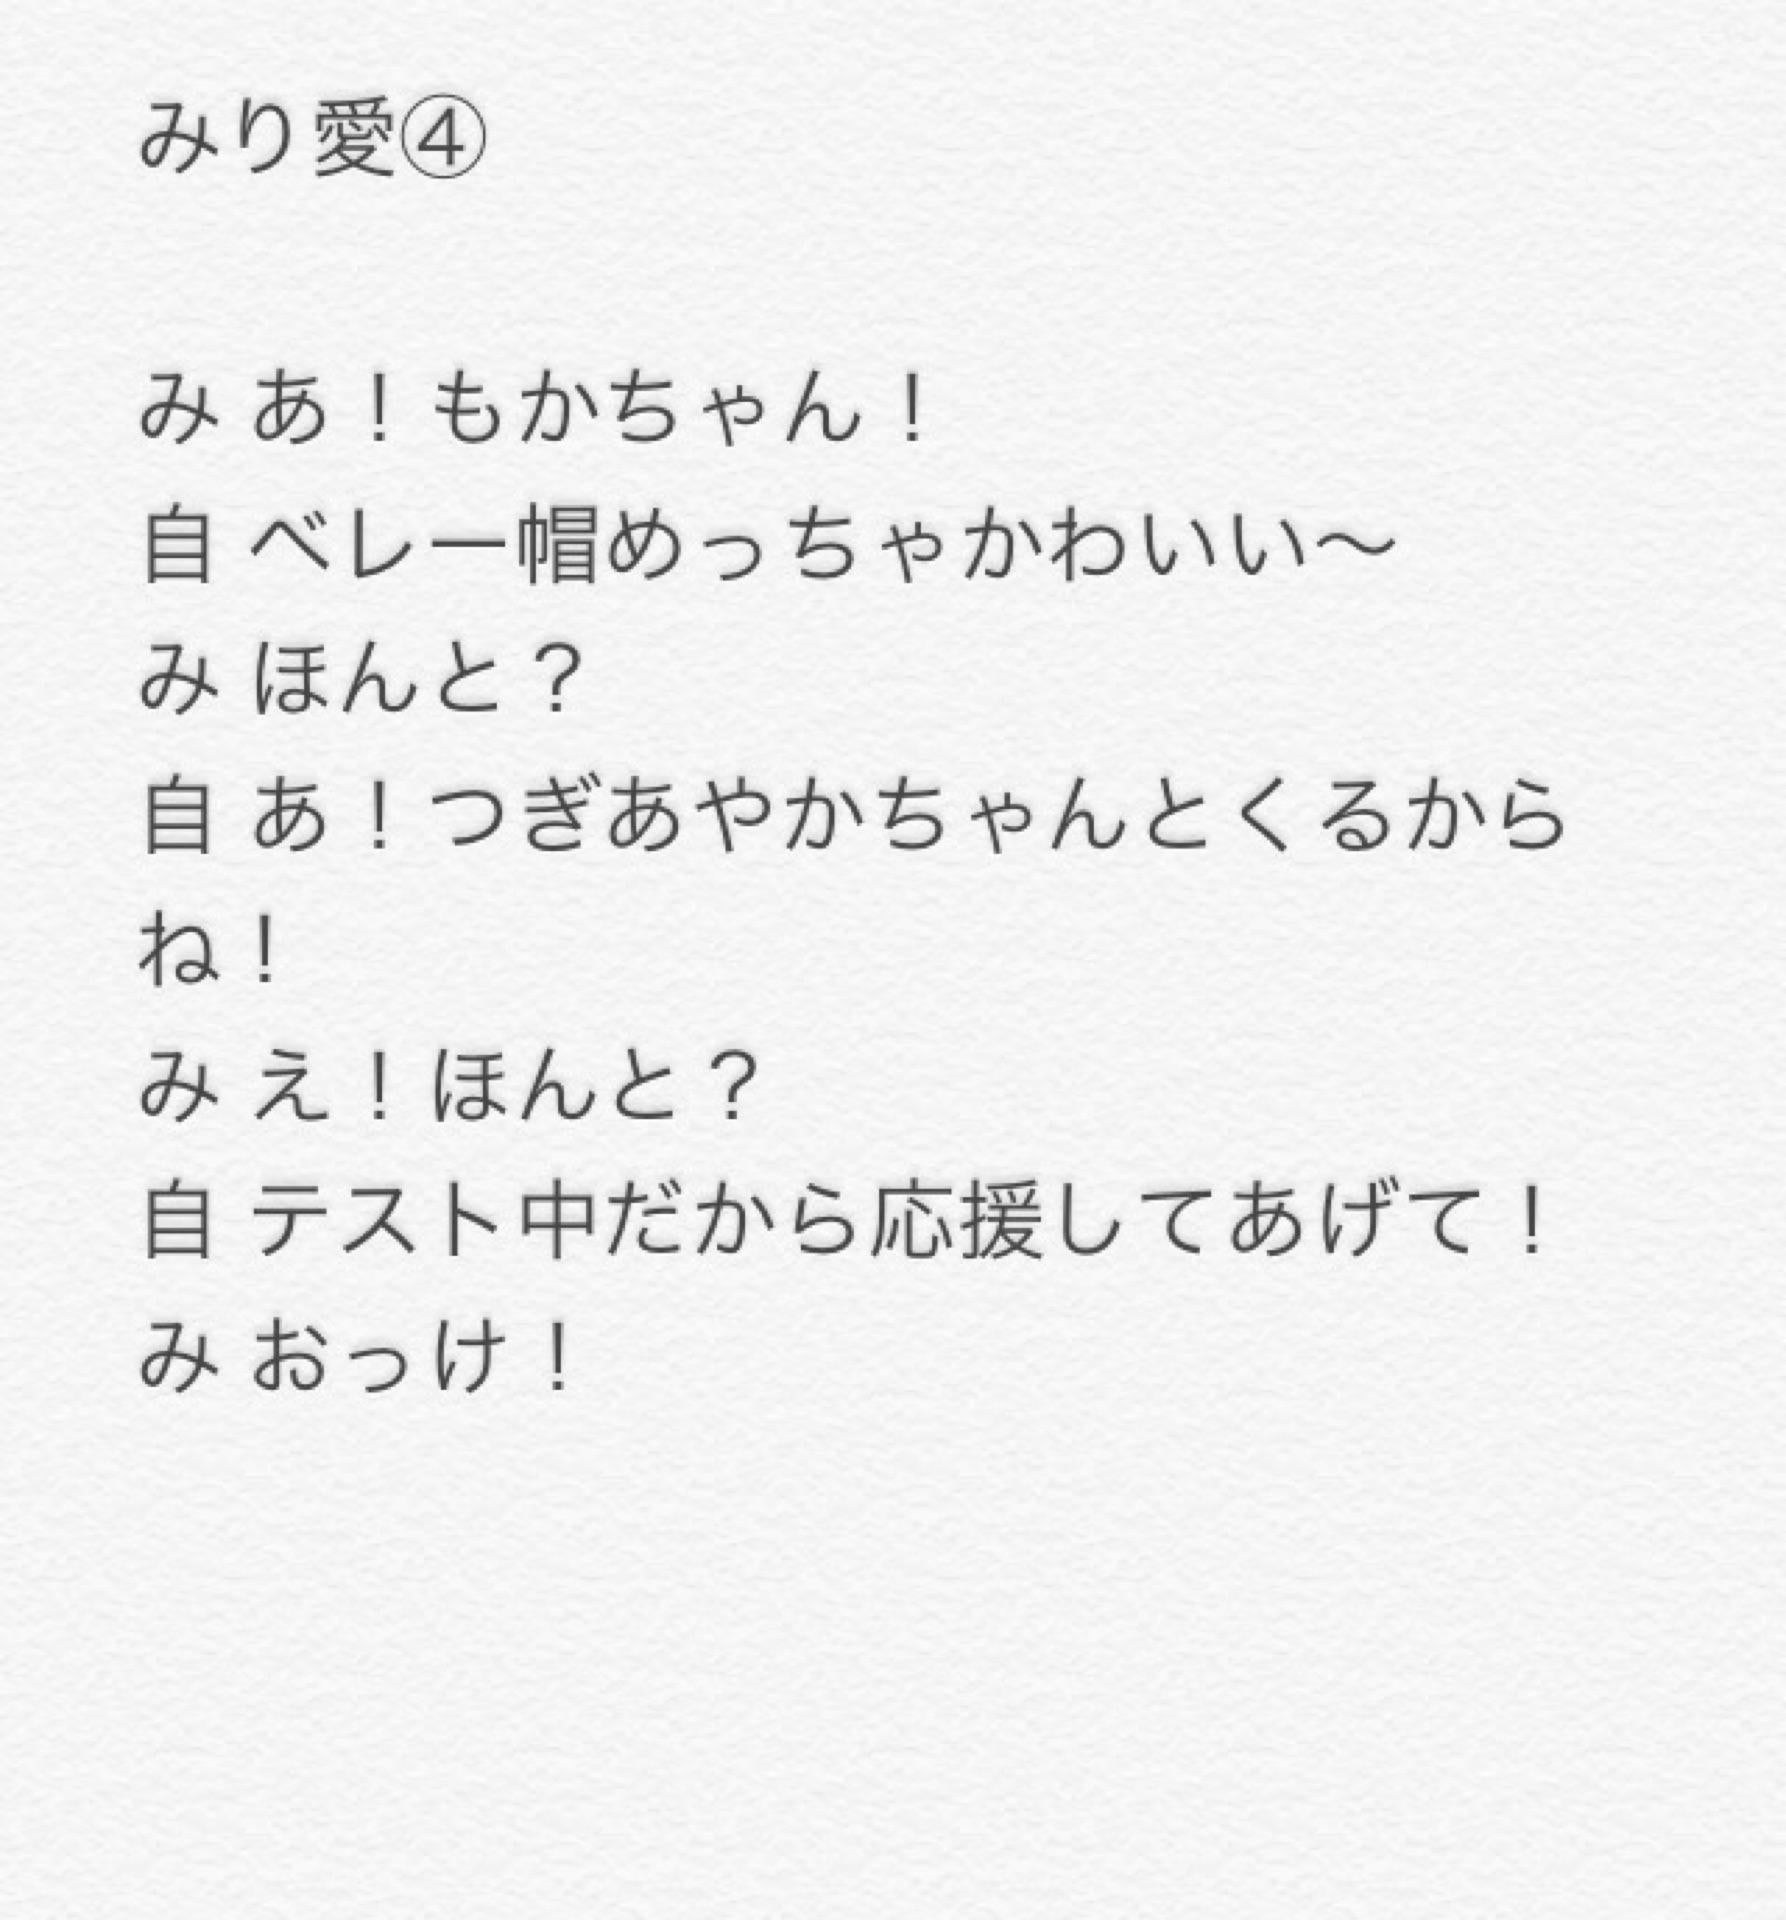 みり愛④
み あ！もかちゃん！
自 ベレー帽めっちゃかわいい〜
み ほんと？
自 あ！つぎあやかちゃんとくるから
ね！
み え！ほんと？
自 テスト中だから応援してあげて！
み おっけ！